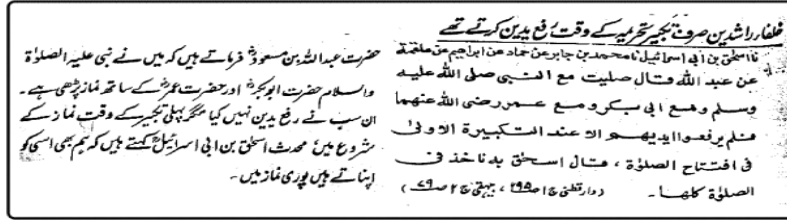 خلفاء راشدین صرف تکبیر تحریمہ کے وقت رفع یدین کرتے تھے
نا اسحٰق بن ابی اسرائیل نا محمد بن جابر عن حماد عن ابراھیم عن علقمة
عن عبد الله قال صليت مع النبى صلى الله عليه
وسلم ومع ابى بكر ومع عمر رضى الله عنهما
فلم يرفعوا ايديهم الا عند التكبيرة الاولىٰ
فى افتتاح الصلوٰة ، قال اسحٰق به ناخذ فى
الصلوٰة كلها ۔ (دارقطنی ج۱ ص ۲۹۵ ، بیہقی ج ۲ ص ۷۹)
حضرت عبداللہ بن مسعودؓ فرماتے ہیں کہ میں نے نبی علیہ الصلوٰة
والسلام حضرت ابوبکرؓ اور حضرت عمرؓ کے ساتھ نماز پڑھی ہے ۔
ان سب نے رفع یدین نہیں کیا مگر پہلی تکبیر کے وقت نماز کے
شروع میں ، محدث اسحٰق بن ابی اسرائیلؒ کہتے ہیں کہ ہم بھی اسی کو
اپناتے ہیں پوری نماز میں ۔